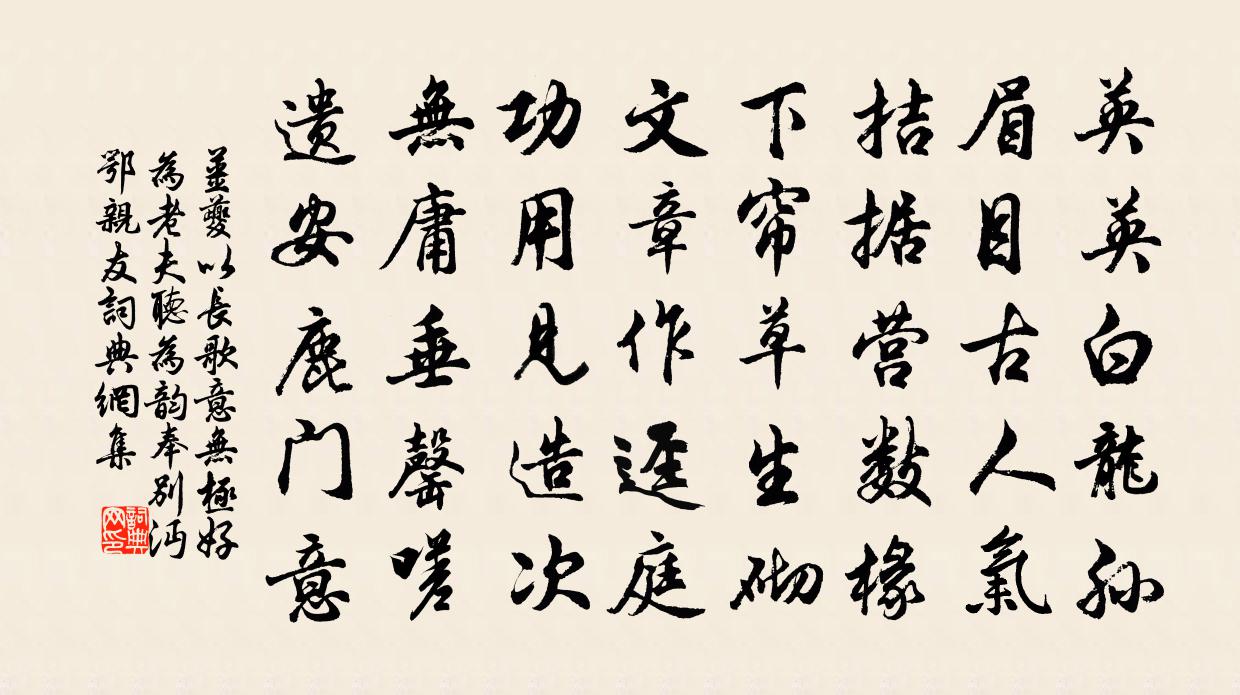 英英白龍孫
眉目古人氣
拮据营数椽
下帘草生砌
文章作逕庭
功用見造次
無庸垂罄嗟
遺安鹿门意
薑夔以長歌意無極好
為老夫聽為韵奉别沔
鄂親友詞典網集
詞典网印